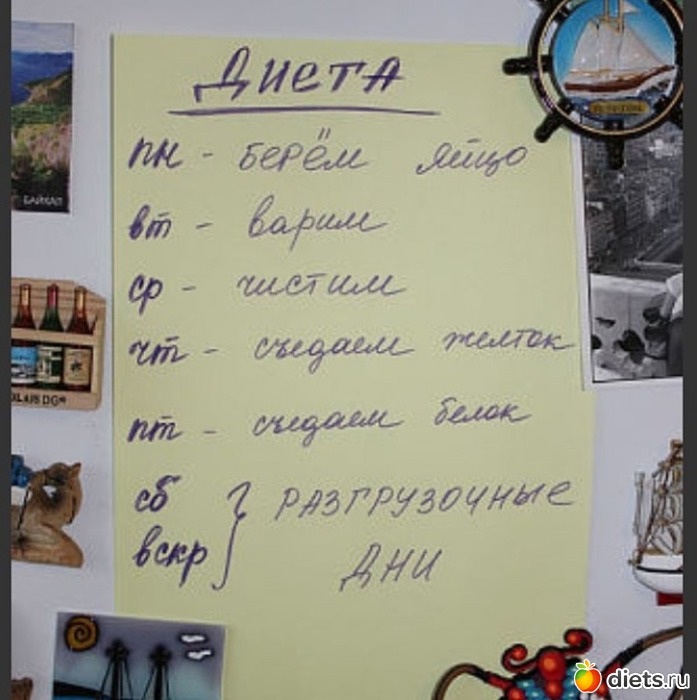 Диета
пн - берём яйцо
вт - варим
ср - чистим
чт - съедаем желток
пт - съедаем белок
сб
вскр
РАЗГРУЗОЧНЫЕ
ДНИ
БАЙКАЛ
diets.ru